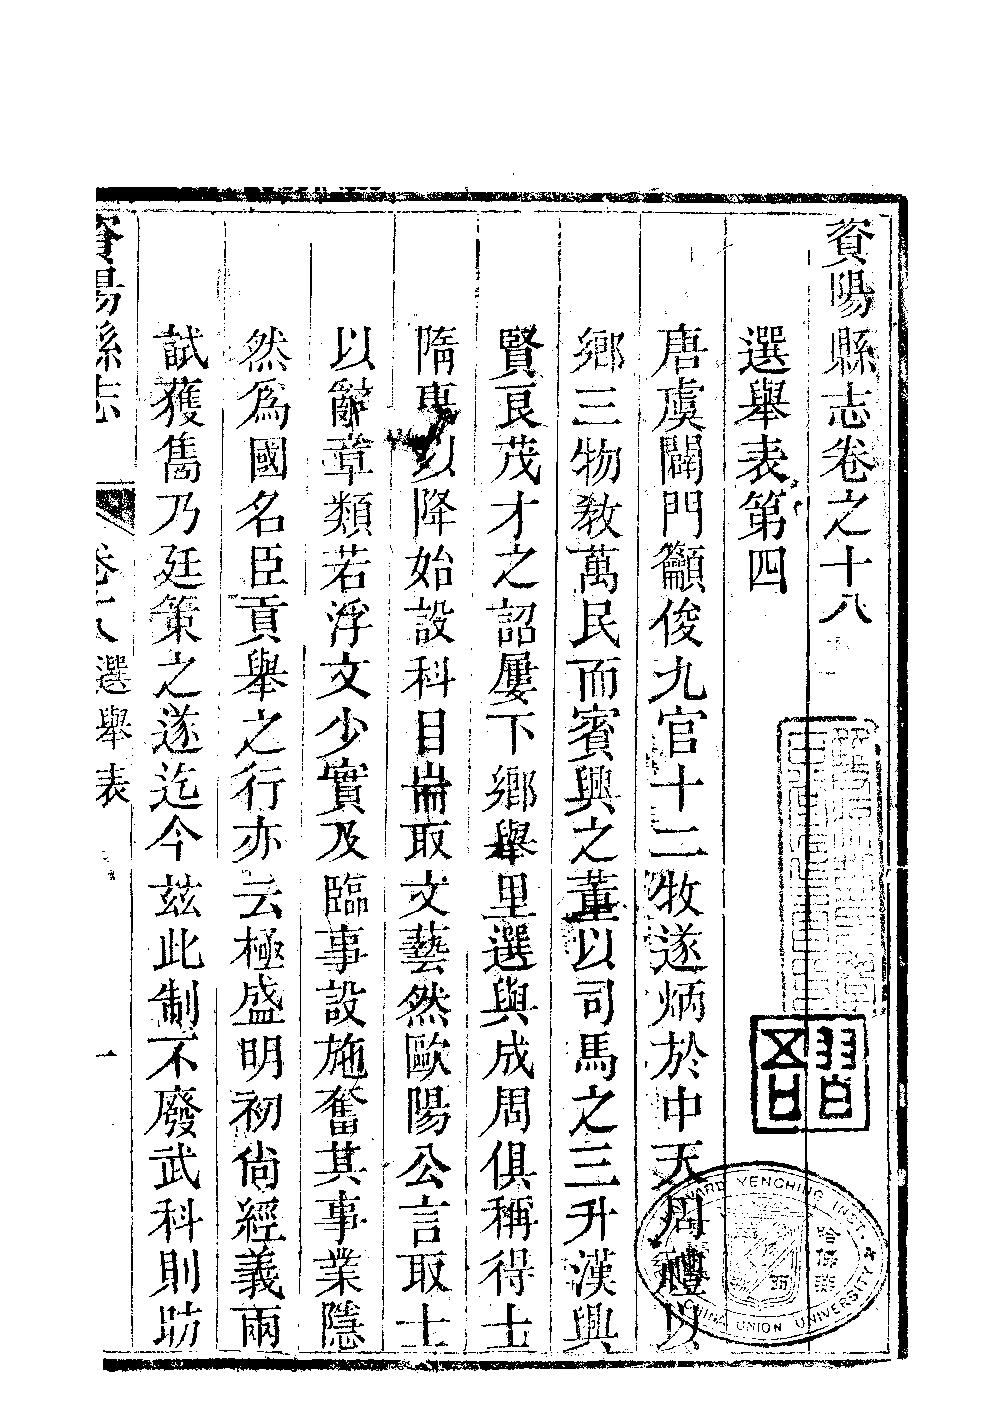 資陽縣志卷之十八
選舉表第四
唐虞闢門籲俊九官十二牧遂炳於中天周禮以
鄉三物敎萬民而賓興之董以司馬之三升漢興
賢良茂才之詔屢下鄉舉里選與成周俱稱得士
隋唐以降始設科目耑取文藝然歐陽公言取士
以辭章類若浮文少實及臨事設施奮其事業隱
然爲國名臣貢舉之行亦云極盛明初尙經義兩
試獲雋乃廷策之遂迄今茲此制不廢武科則昉
資陽縣志 卷十八 選舉表 一
YENCHING INST.
UNION UNIVERSITY